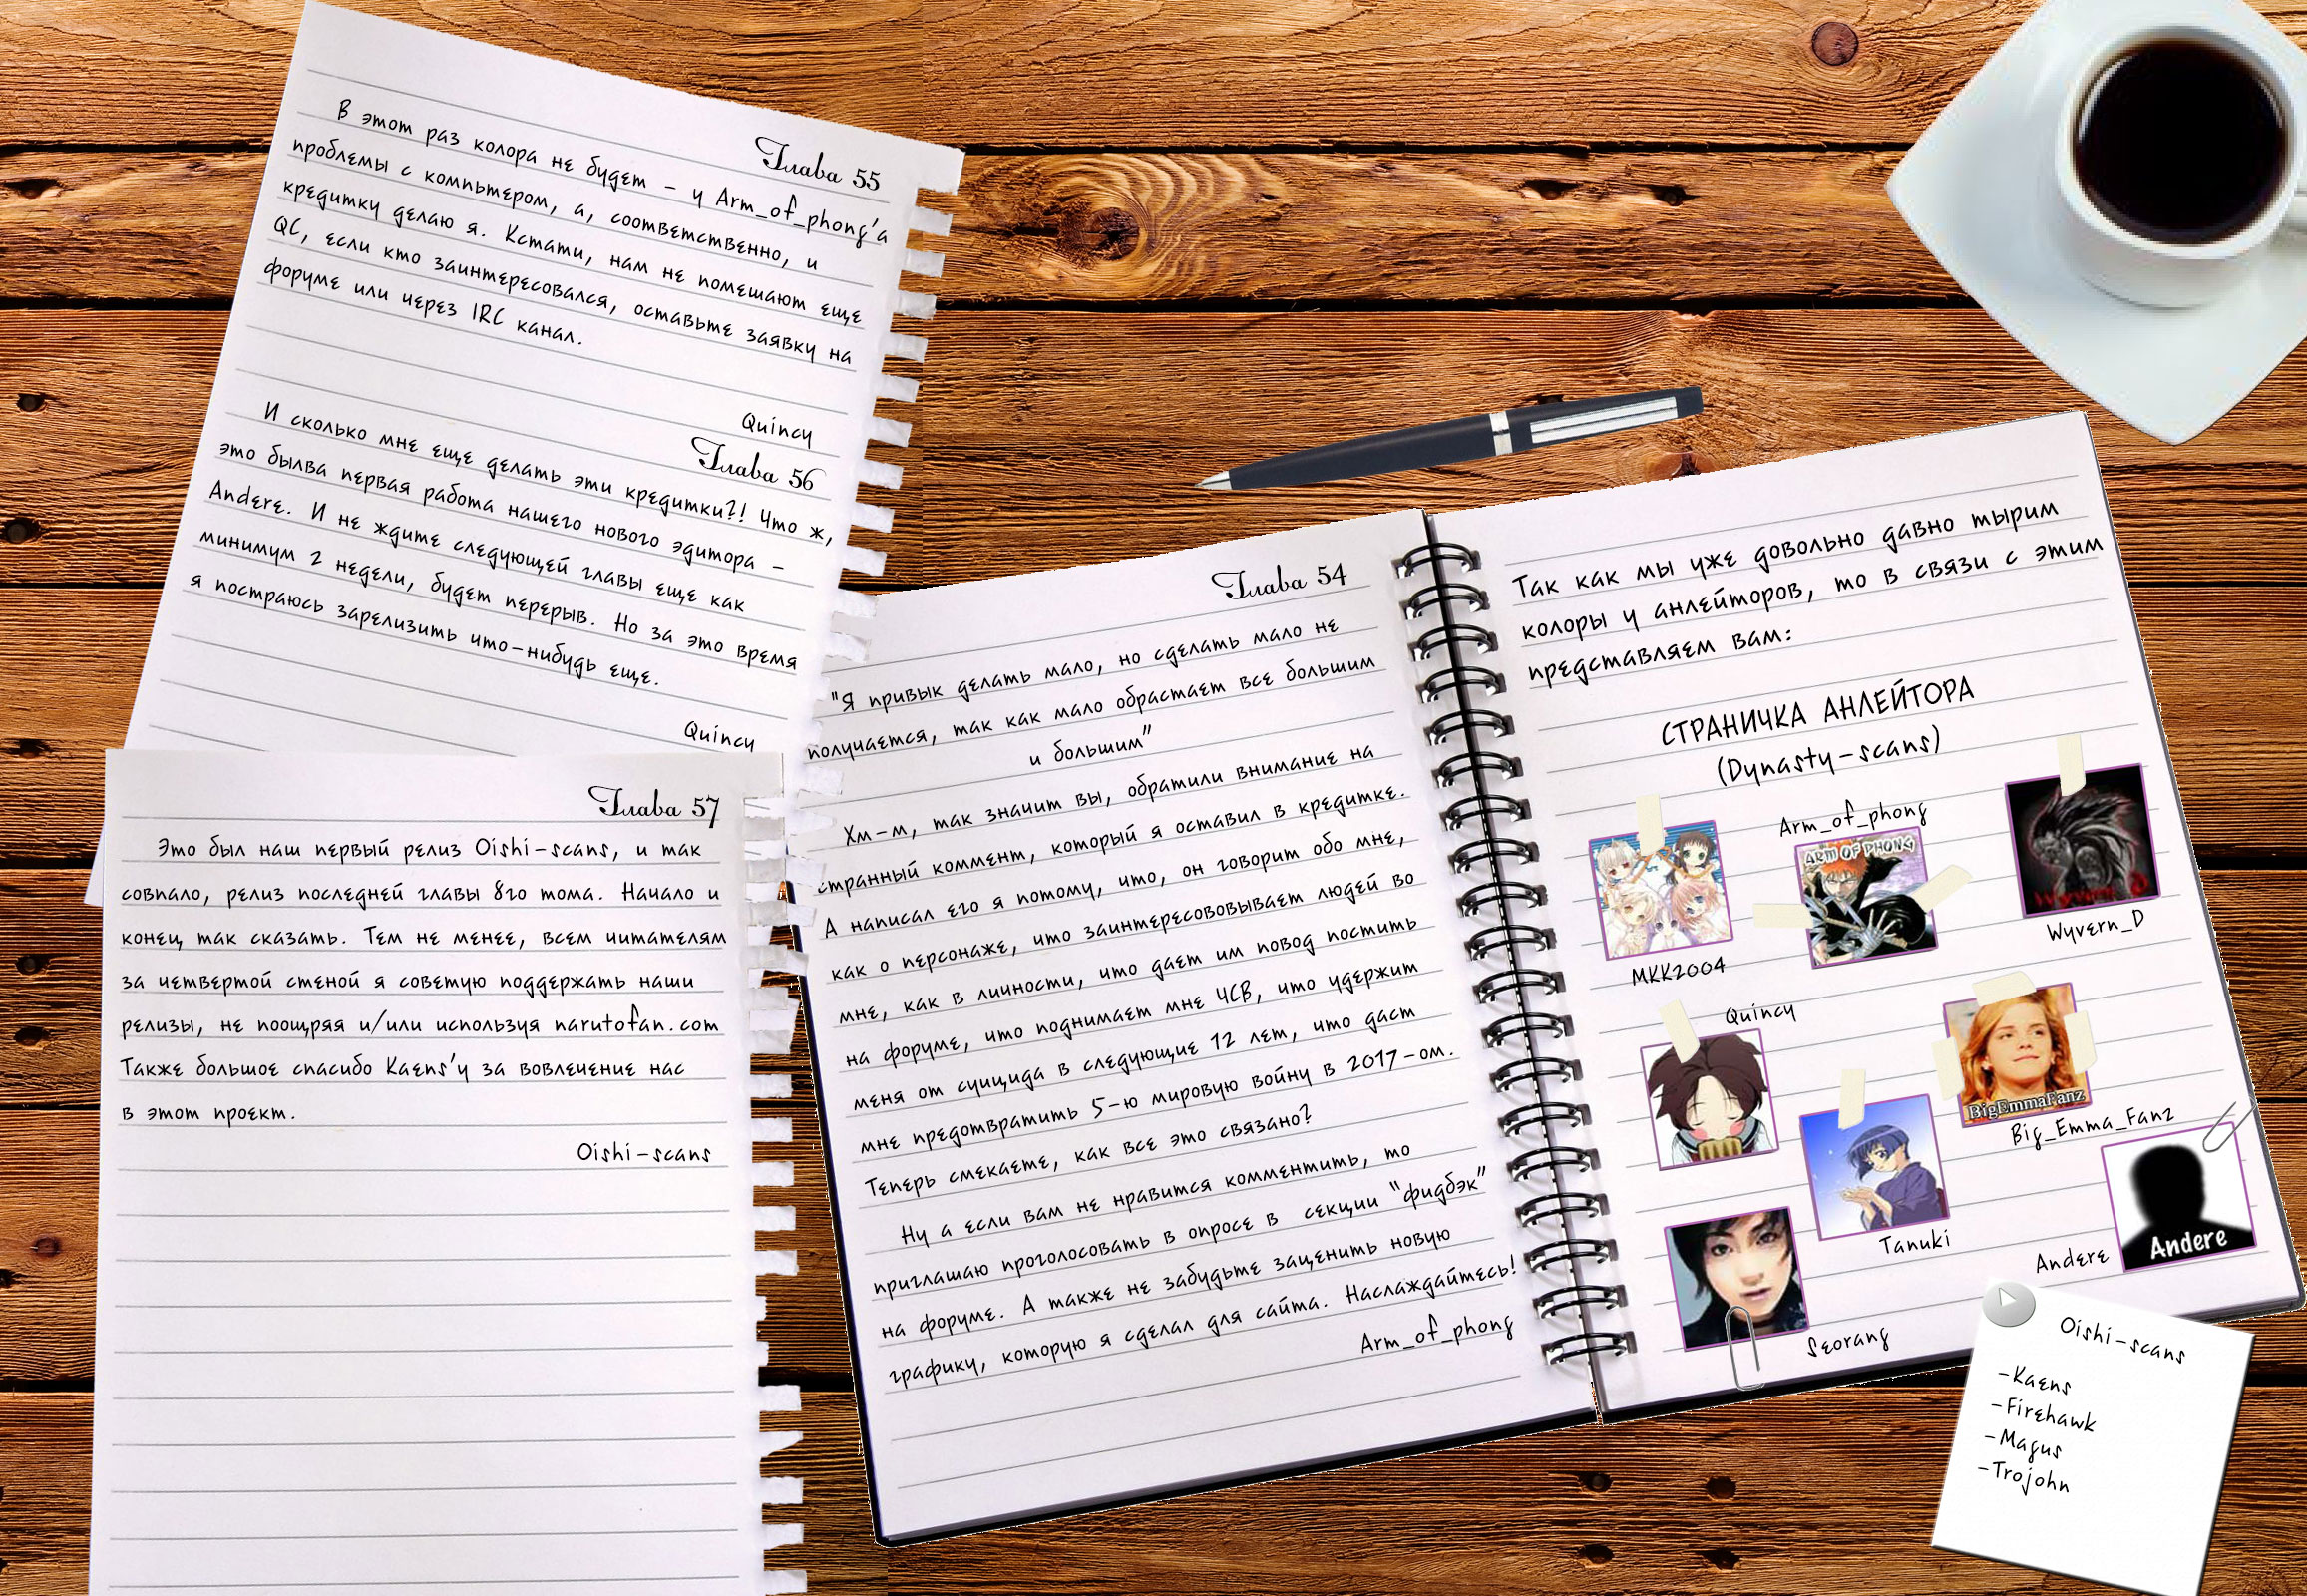 Глава 55
В этот раз колора не будет - у Arm_of_phong'а
проблемы с компьтером, а, соответственно, и
кредитку делаю я. Кстати, нам не помешают еще
QC, если кто заинтересовался, оставьте заявку на
форуме или через IRC канал.
Quincy
Глава 56
И сколько мне еще делать эти кредитки?! Что ж,
это былва первая работа нашего нового эдитора -
Andere. И не ждите следующей главы еще как
минимум 2 недели, будет перерыв. Но за это время
я постраюсь зарелизить что-нибудь еще.
Quincy
Глава 57
Это был наш первый релиз Oishi-scans, и так
совпало, релиз последней главы 8го тома. Начало и
конец так сказать. Тем не менее, всем читателям
за четвертой стеной я советую поддержать наши
релизы, не поощряя и/или используя narutofan.com
Также большое спасибо Kaens'у за вовлечение нас
в этот проект.
Oishi-scans
Глава 54
"Я привык делать мало, но сделать мало не
получается, так как мало обрастает все большим
и большим"
Хм-м, так значит вы, обратили внимание на
странный коммент, который я оставил в кредитке.
А написал его я потому, что, он говорит обо мне,
как о персонаже, что заинтересововывает людей во
мне, как в личности, что дает им повод постить
на форуме, что поднимает мне ЧСВ, что удержит
меня от суицида в следующие 12 лет, что даст
мне предотвратить 5-ю мировую войну в 2017-ом.
Теперь смекаете, как все это связано?
Ну а если вам не нравится комментить, то
приглашаю проголосовать в опросе в секции "фидбэк"
на форуме. А также не забудьте заценить новую
графику, которую я сделал для сайта. Наслаждайтесь!
Arm_of_phong
Так как мы уже довольно давно тырим
колоры у анлейторов, то в связи с этим
представляем вам:
СТРАНИЧКА АНЛЕЙТОРА
(Dynasty-scans)
MKK2004
Arm_of_phong
ARM OF PHONG
Wyvern D
Wyvern_D
Quincy
BigEmmaFanz
Big_Emma_Fanz
Tanuki
Andere
Andere
Seorang
Oishi-scans
-Kaens
-Firehawk
-Magus
-Trojohn